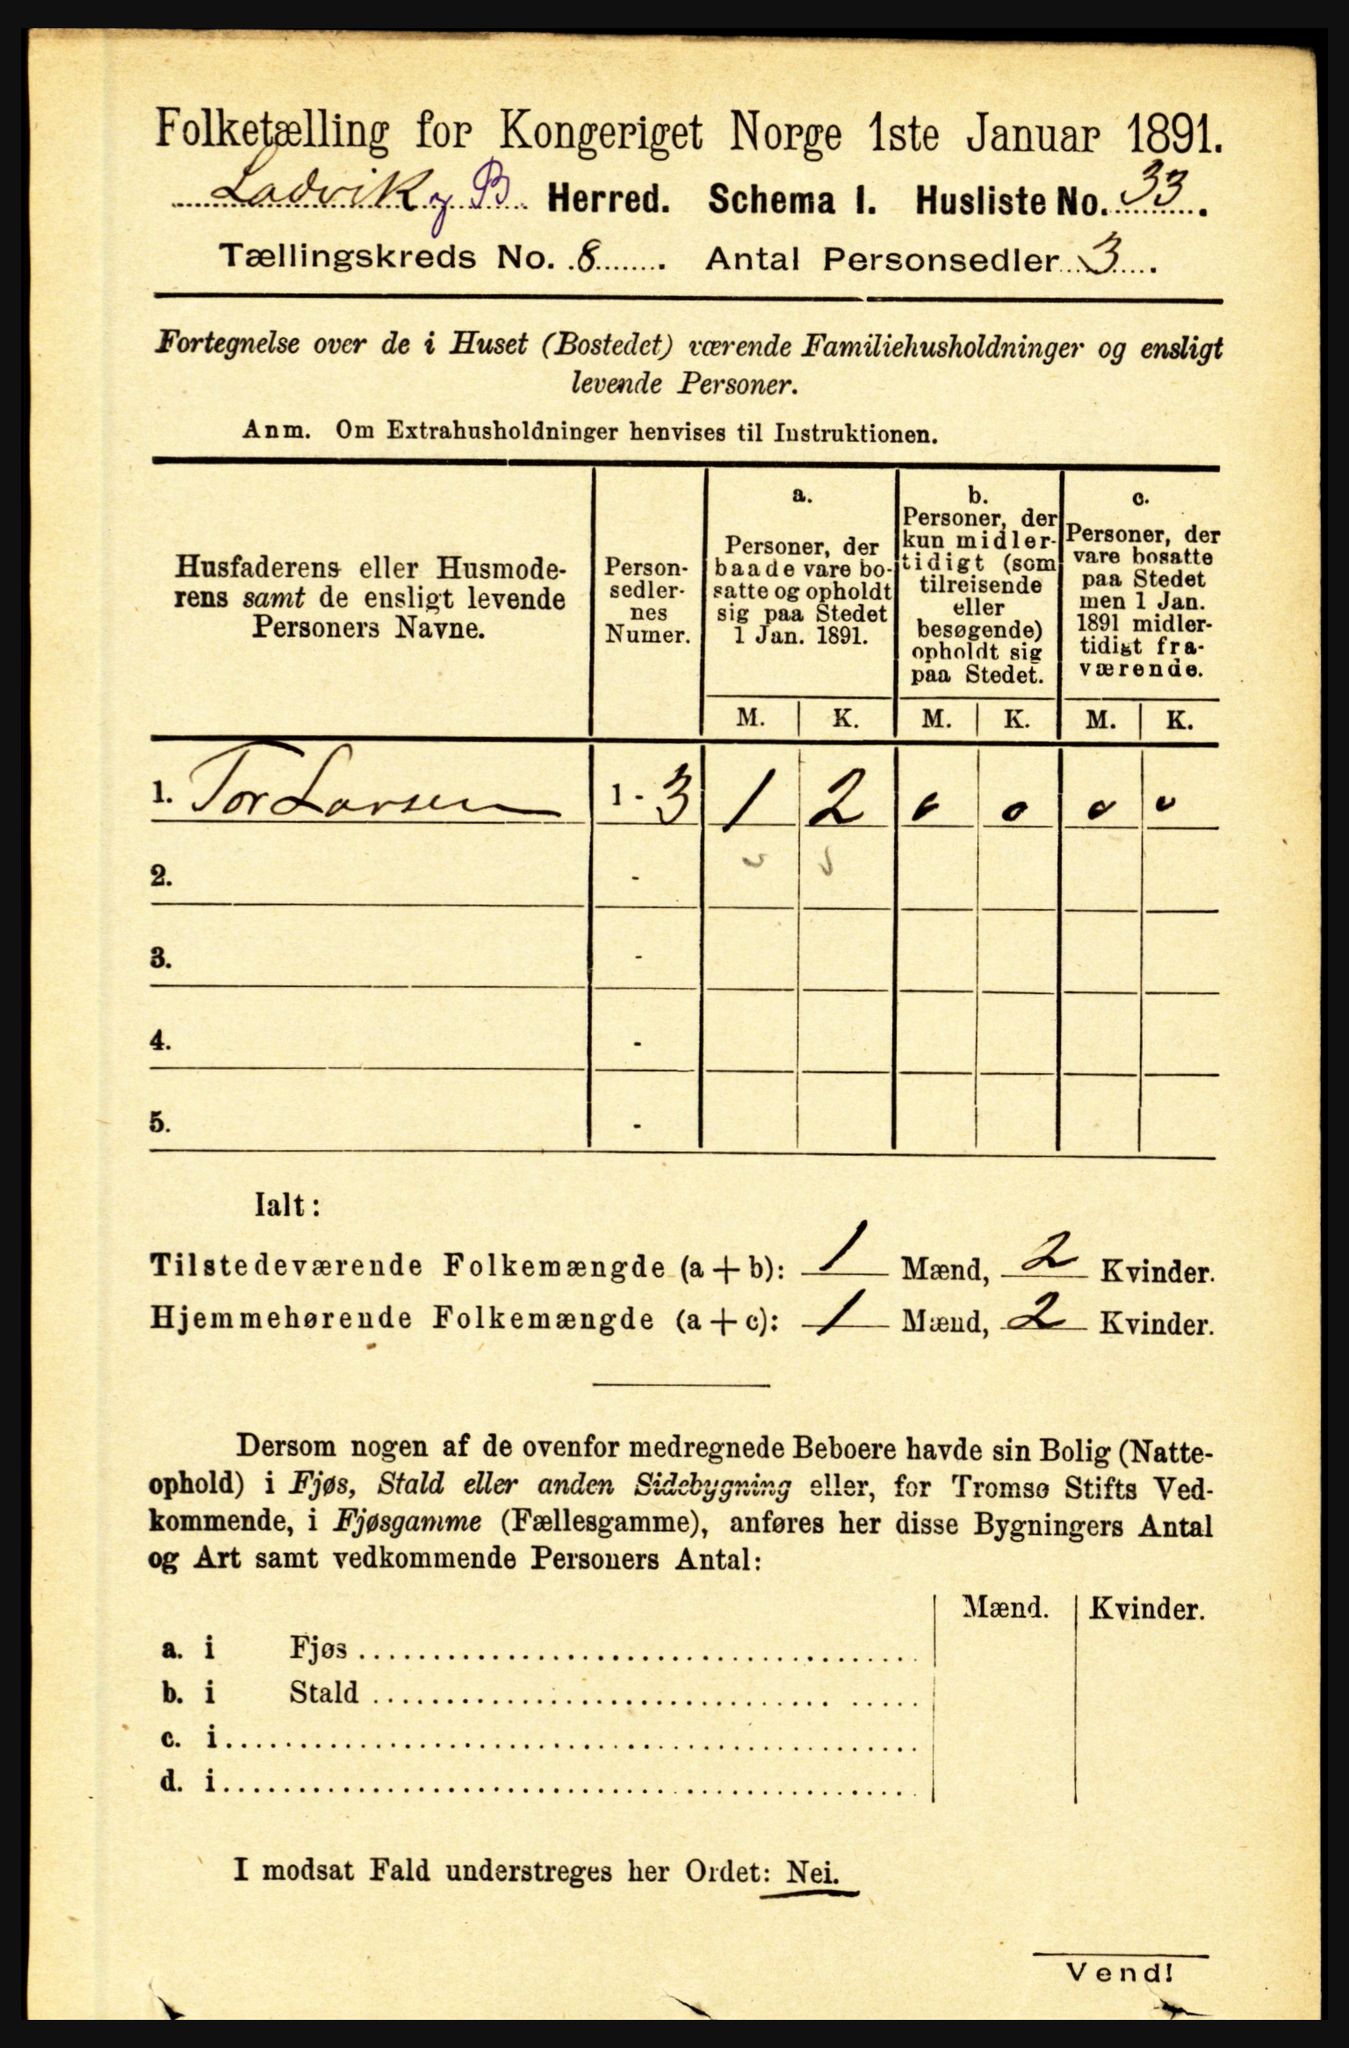 Folketælling for Kongeriget Norge 1ste Januar 1891.
Ladvik og B. Herred. Schema I. Husliste No. 33.
Tællingskreds No. 8. Antal Personsedler 3.
Fortegnelse over de i Huset (Bostedet) værende Familiehusholdninger og ensligt
levende Personer.
Anm. Om Extrahusholdninger henvises til Instruktionen.
Husfaderens eller Husmode-
rens samt de ensligt levende
Personers Navne.
Person-
sedler-
nes
Numer.
a.
Personer, der
baade vare bo-
satte og opholdt
sig paa Stedet
1 Jan. 1891.
b.
Personer, der
kun midler-
tidigt (som
tilreisende
eller
besøgende)
opholdt sig
paa Stedet.
c.
Personer, der
vare bosatte
paa Stedet
men 1 Jan.
1891 midler-
tidigt fra-
værende.
M. K. M. K. M. K.
1. Tor Larsen 1 - 3 1 2 0 0 0 0
2. -
3. -
4. -
5. -
Ialt:
Tilstedeværende Folkemængde (a + b): 1 Mænd, 2 Kvinder.
Hjemmehørende Folkemængde (a + c): 1 Mænd, 2 Kvinder.
Dersom nogen af de ovenfor medregnede Beboere havde sin Bolig (Natte-
ophold) i Fjøs, Stald eller anden Sidebygning eller, for Tromsø Stifts Ved-
kommende, i Fjøsgamme (Fællesgamme), anføres her disse Bygningers Antal
og Art samt vedkommende Personers Antal:
Mænd. Kvinder.
a. i Fjøs
b. i Stald
c. i
d. i
I modsat Fald understreges her Ordet: Nei.
Vend!